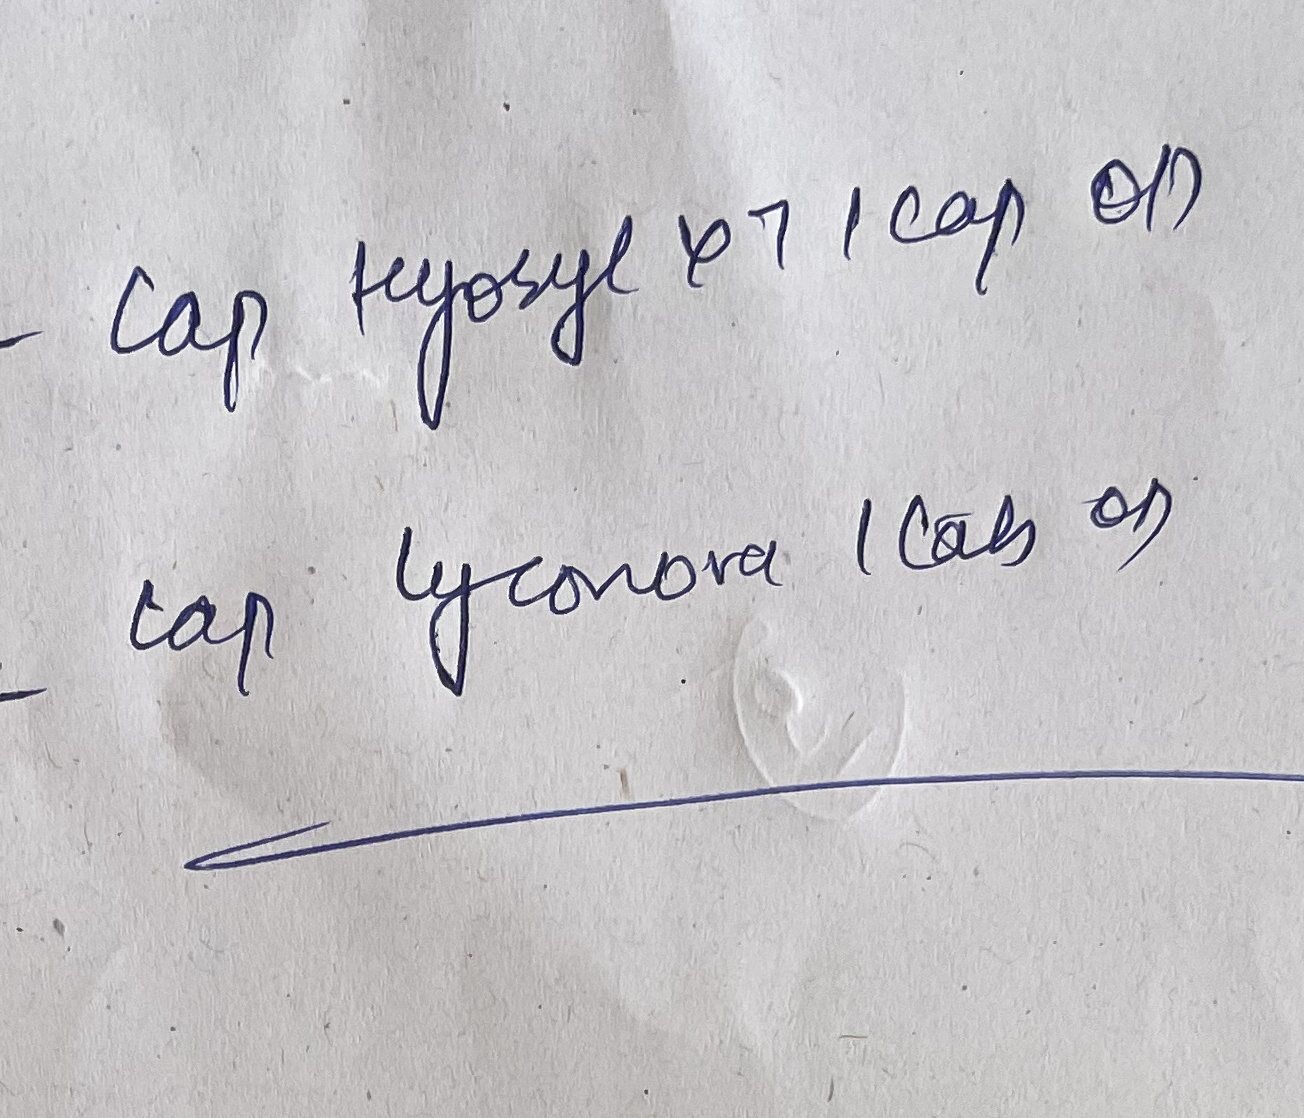 - Cap Hyosyl 1 cap OD
- Cap Lyconova 1 Cap OD